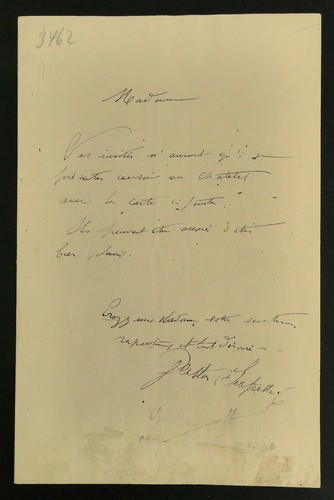 3462
Madame
Vos invités n'auront qu'à se
présenter ce soir au Châtelet
avec la carte ci jointe.
Ils peuvent être assuré d'être
bien placés.
Croyez moi Madame, votre
respectueux et tout dévoué
Gaston Serpette